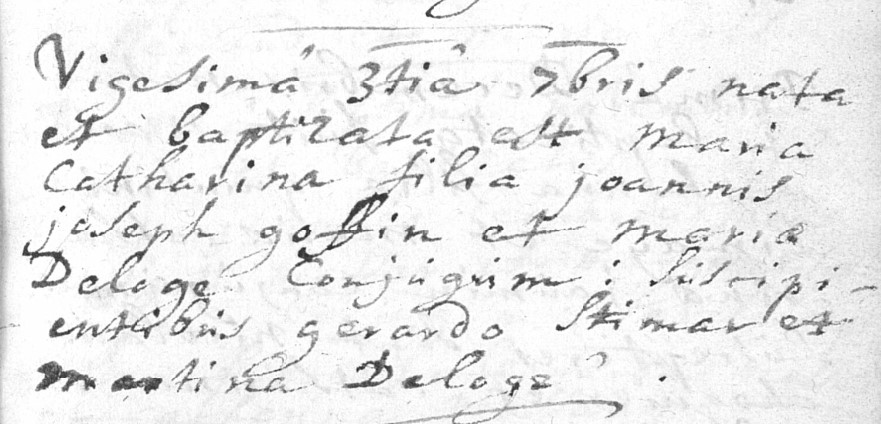 Vigesimâ 3tiâ 7bris nata
et baptizata est Maria
Catharina filia joannis
joseph goffin et mariæ
Deloge Conjugum ; suscipi-
entibus gerardo Stimar et
martina Deloge .